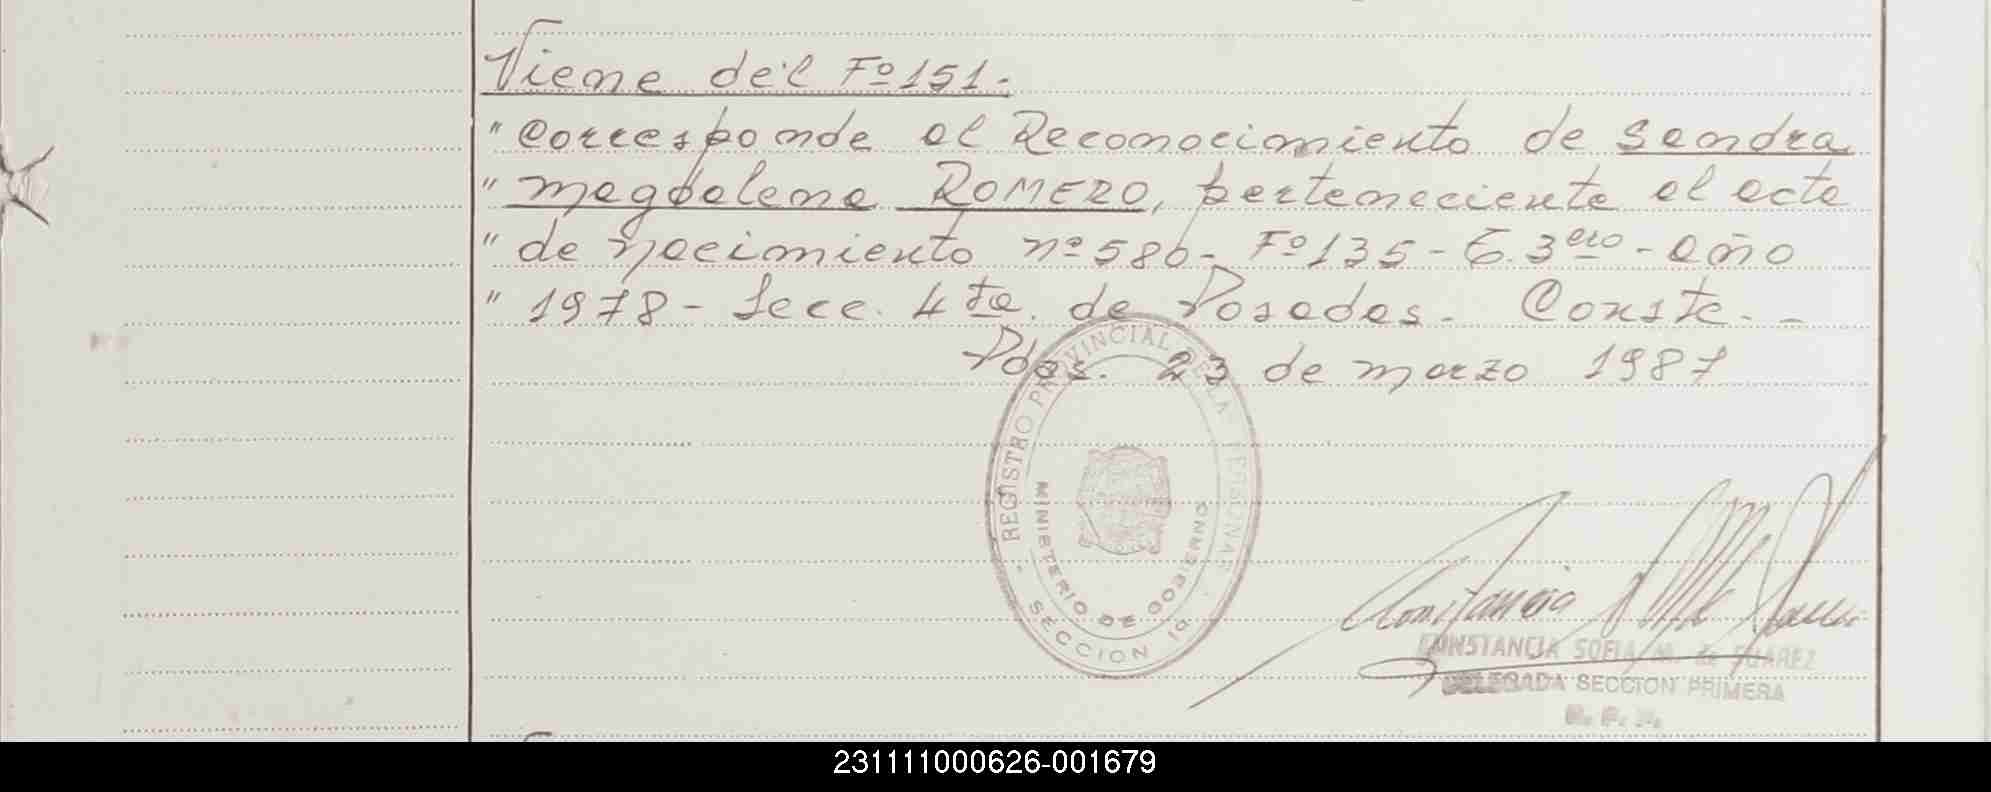 Viene del Fº 151.-
" Corresponde al Reconocimiento de Sandra
" Magdalena ROMERO, perteneciente al acta
" de nacimiento nº 586- Fº 135 - T. 3ero - año
" 1978 - Secc. 4ta. de Posadas. Conste. -
Pdas. 23 de marzo 1987
REGISTRO PROVINCIAL DE LAS PERSONAS
MINISTERIO DE GOBIERNO
SECCION 1a
CONSTANCIA SOFIA M. de SUAREZ
DELEGADA SECCION PRIMERA
R. P. P.
231111000626-001679